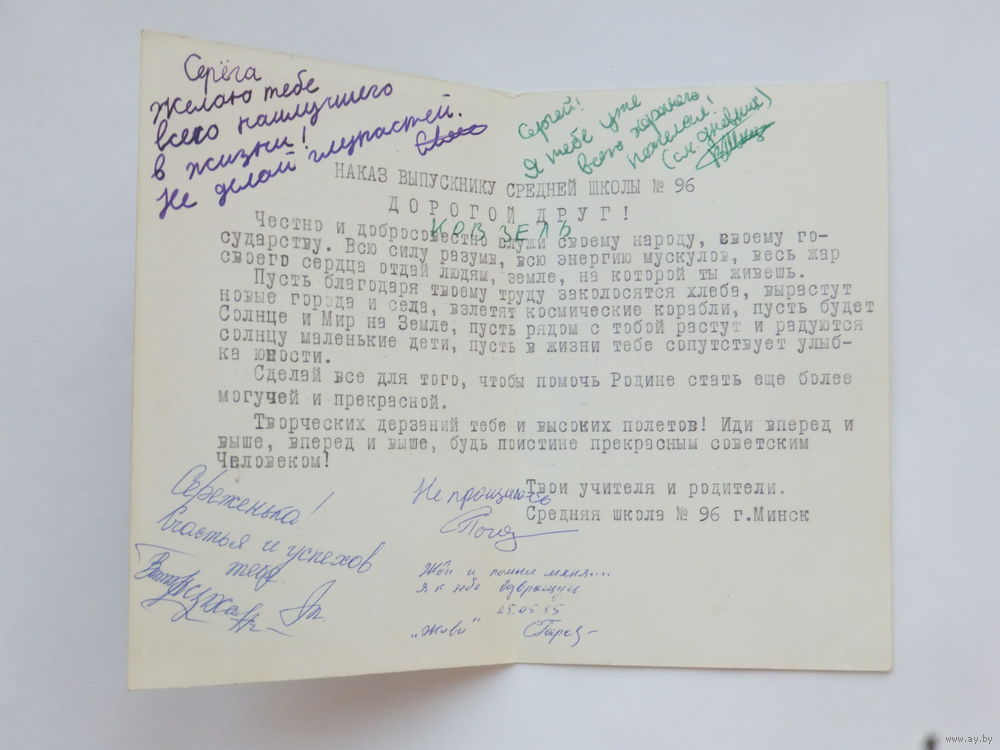 Серёга
Желаю тебе
всего наилучшего
в жизни!
Не делай глупрастей.
Сергей!
Я тебе уже
всего хорошего
пожелал!
(см. дневник)
НАКАЗ ВЫПУСКНИКУ СРЕДНЕЙ ШКОЛЫ № 96
ДОРОГОЙ ДРУГ!
КОВЗЕЛЬ
Честно и добросовестно служи своему народу, своему го-
сударству. Всю силу разума, всю энергию мускулов, весь жар
своего сердца отдай людям, земле, на которой ты живешь.
Пусть благодаря твоему труду заколосятся хлеба, вырастут
новые города и села, взлетят космические корабли, пусть будет
Солнце и Мир на Земле, пусть рядом с тобой растут и радуются
солнцу маленькие дети, пусть в жизни тебе сопутствует улыб-
ка юности.
Сделай все для того, чтобы помочь Родине стать еще более
могучей и прекрасной.
Творческих дерзаний тебе и высоких полетов! Иди вперед и
выше, вперед и выше, будь поистине прекрасным советским
Человеком!
Твои учителя и родители.
Средняя школа № 96 г.Минск
Сереженька!
Счастья и успехов
тебе
Не прощаюсь
Жди и помни меня...
Я к тебе возвращусь
25.05.85
"Живи"
www.ay.by